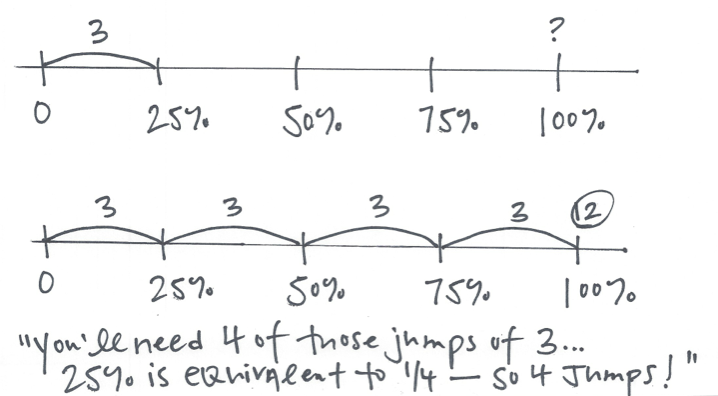 3 ?
0 25% 50% 75% 100%
3 3 3 3 12
0 25% 50% 75% 100%
"You'll need 4 of those jumps of 3...
25% is equivalent to 1/4 — so 4 Jumps!"